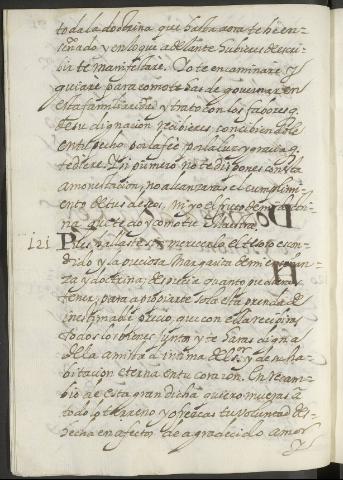 toda la doctrina que hasta aora te he en-
señado y en lo que adelante hubieres de escri-
bir te manifestare. Yo te encaminare y
guiare para como te has de governar en
esta familiaridad y trato con los fabores q.
de su dignacion recibieres, concibiendole
en tu pecho por la fee por la luz y gracia q.
te diere. Y si primero no te dispones con esta
amonestacion, no alcanzaras el cumplimi-
ento de tus deseos, ni yo el fruto de mi doctri-
na que te doy como tu Maestra.
121 Pues hallaste sin merecerlo el tesoro escon-
dido y la preciosa Margarita de mi enseñan-
za y doctrina, desprecia quanto pudieras
tener, para apropiarte sola esta prenda de
inestimable precio, que con ella recibiras
todos los bienes juntos y te haras digna
de la amistad intima del Sr. y de su ha-
bitacion eterna en tu corazon. En recam-
bio de esta gran dicha quiero mueras a
todo lo terreno y ofrezcas tu voluntad des-
hecha en afectos de agradecido amor
y